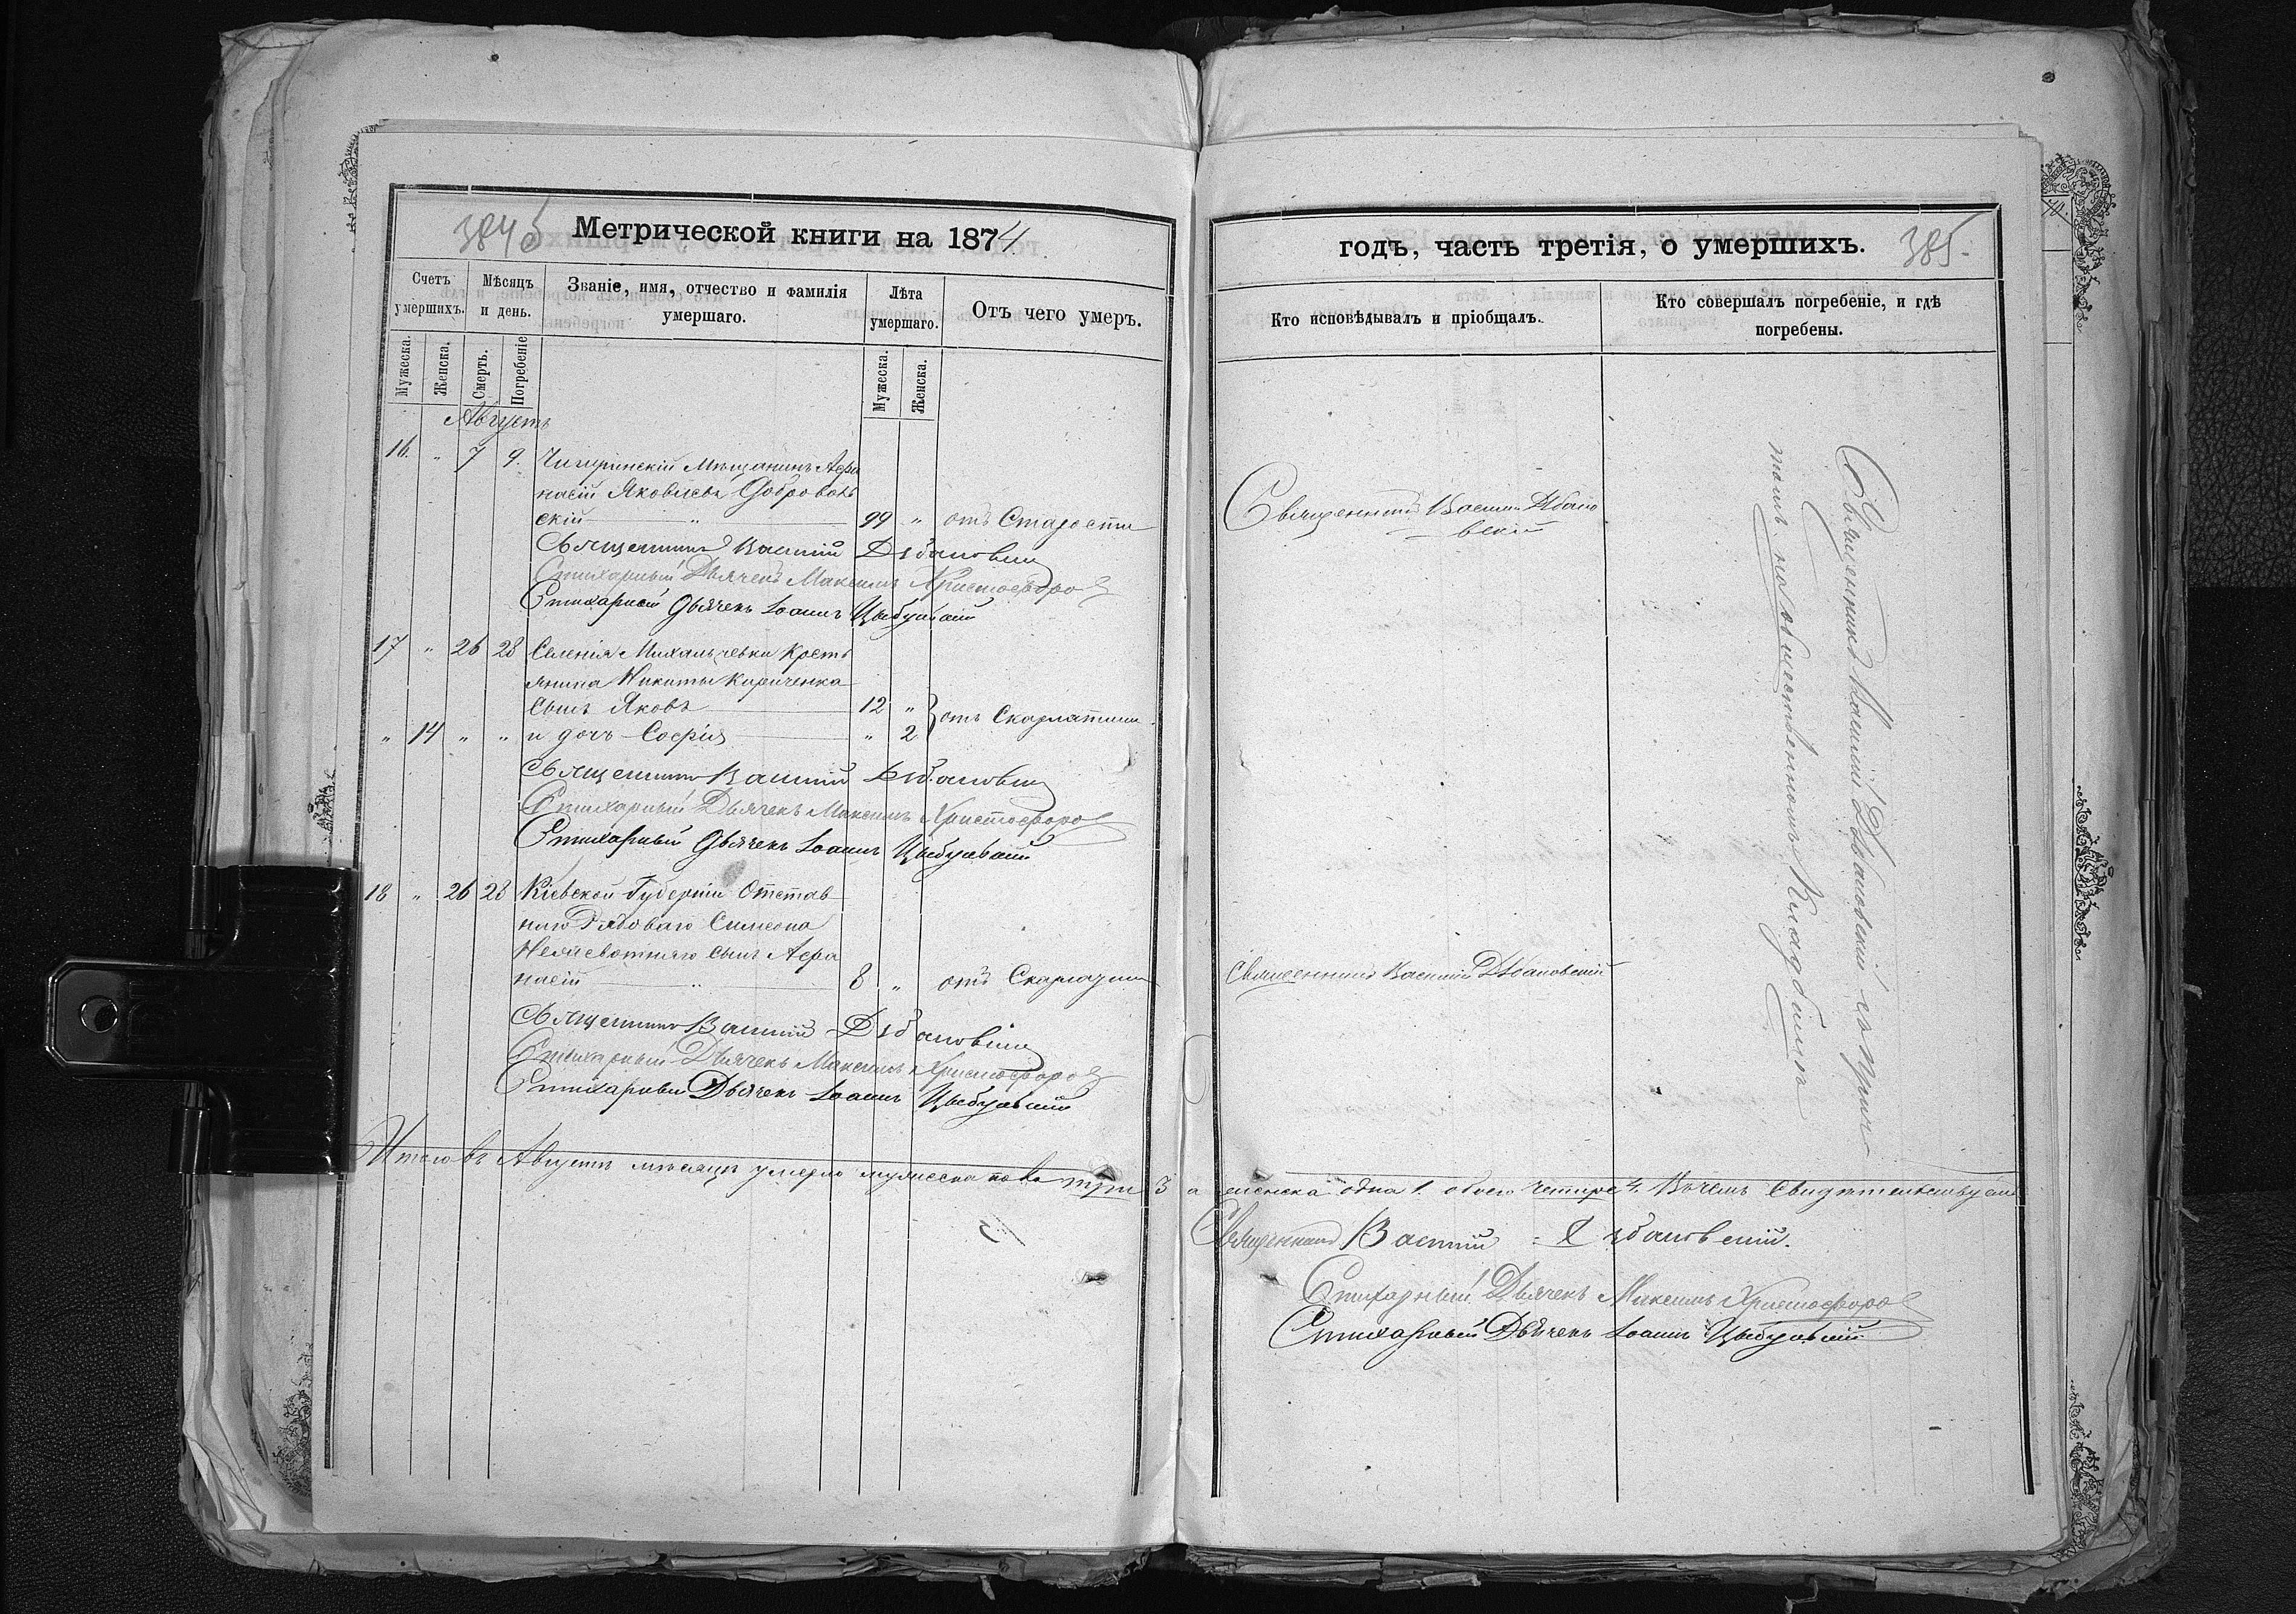 384б
Метрической книги на 1874
Счетъ умершихъ.
Мѣсяцъ и день.
Званіе, имя, отчество и фамилія умершаго.
Лѣта умершаго.
Отъ чего умеръ.
Мужеска.
Женска.
Смерть.
Погребеніе
Мужеска.
Женска.
Августъ
16. " 7 9. Чигиринскій Мѣщанинъ Афа
насій Яковлевъ Доброволь
скій " 99 " отъ Старости
Священникъ Василій Дѣбановскій
Стихарный Дьячекъ Максимъ Христофоров
Стихарный Дьячекъ Іоаннъ Цыбульскій
17 " 26 28 Селенія Михальчевки Кресть
янина Никиты Кириченка
сынъ Яковъ 12 "
отъ Скарлатины
" 14 " " и дочь Софія " 2
Священникъ Василій Дѣбановскій
Стихарный Дьячекъ Максимъ Христофоров
Стихарный Дьячекъ Іоаннъ Цыбульскій
18 " 26 28 Кіевской Губерніи Отстав
наго Рядоваго Симеона
сынъ Афа
насій " 8 " отъ
Священникъ Василій Дѣбановскій
Стихарный Дьячекъ Максимъ Христофоров
Стихарный Дьячекъ Іоаннъ Цыбульскій
Итого въ Августѣ мѣсяцѣ умерло мужеска пола три 3 а женска одна 1. обоего четыре 4. Въ чемъ Свидѣтельствуемъ
годъ, часть третія, о умершихъ.
385.
Кто исповѣдывалъ и пріобщалъ.
Кто совершалъ погребеніе, и гдѣ
погребены.
Священникъ Василій Дѣбано
вскій
Священникъ Василій Дѣбановскій
Священникъ Василій Дѣбановскій съ причт
томъ на общественномъ Кладбищѣ
Священникъ Василій Дѣбановскій.
Стихарный Дьячекъ Максимъ Христофоров
Стихарный Дьячекъ Іоаннъ Цыбульскій